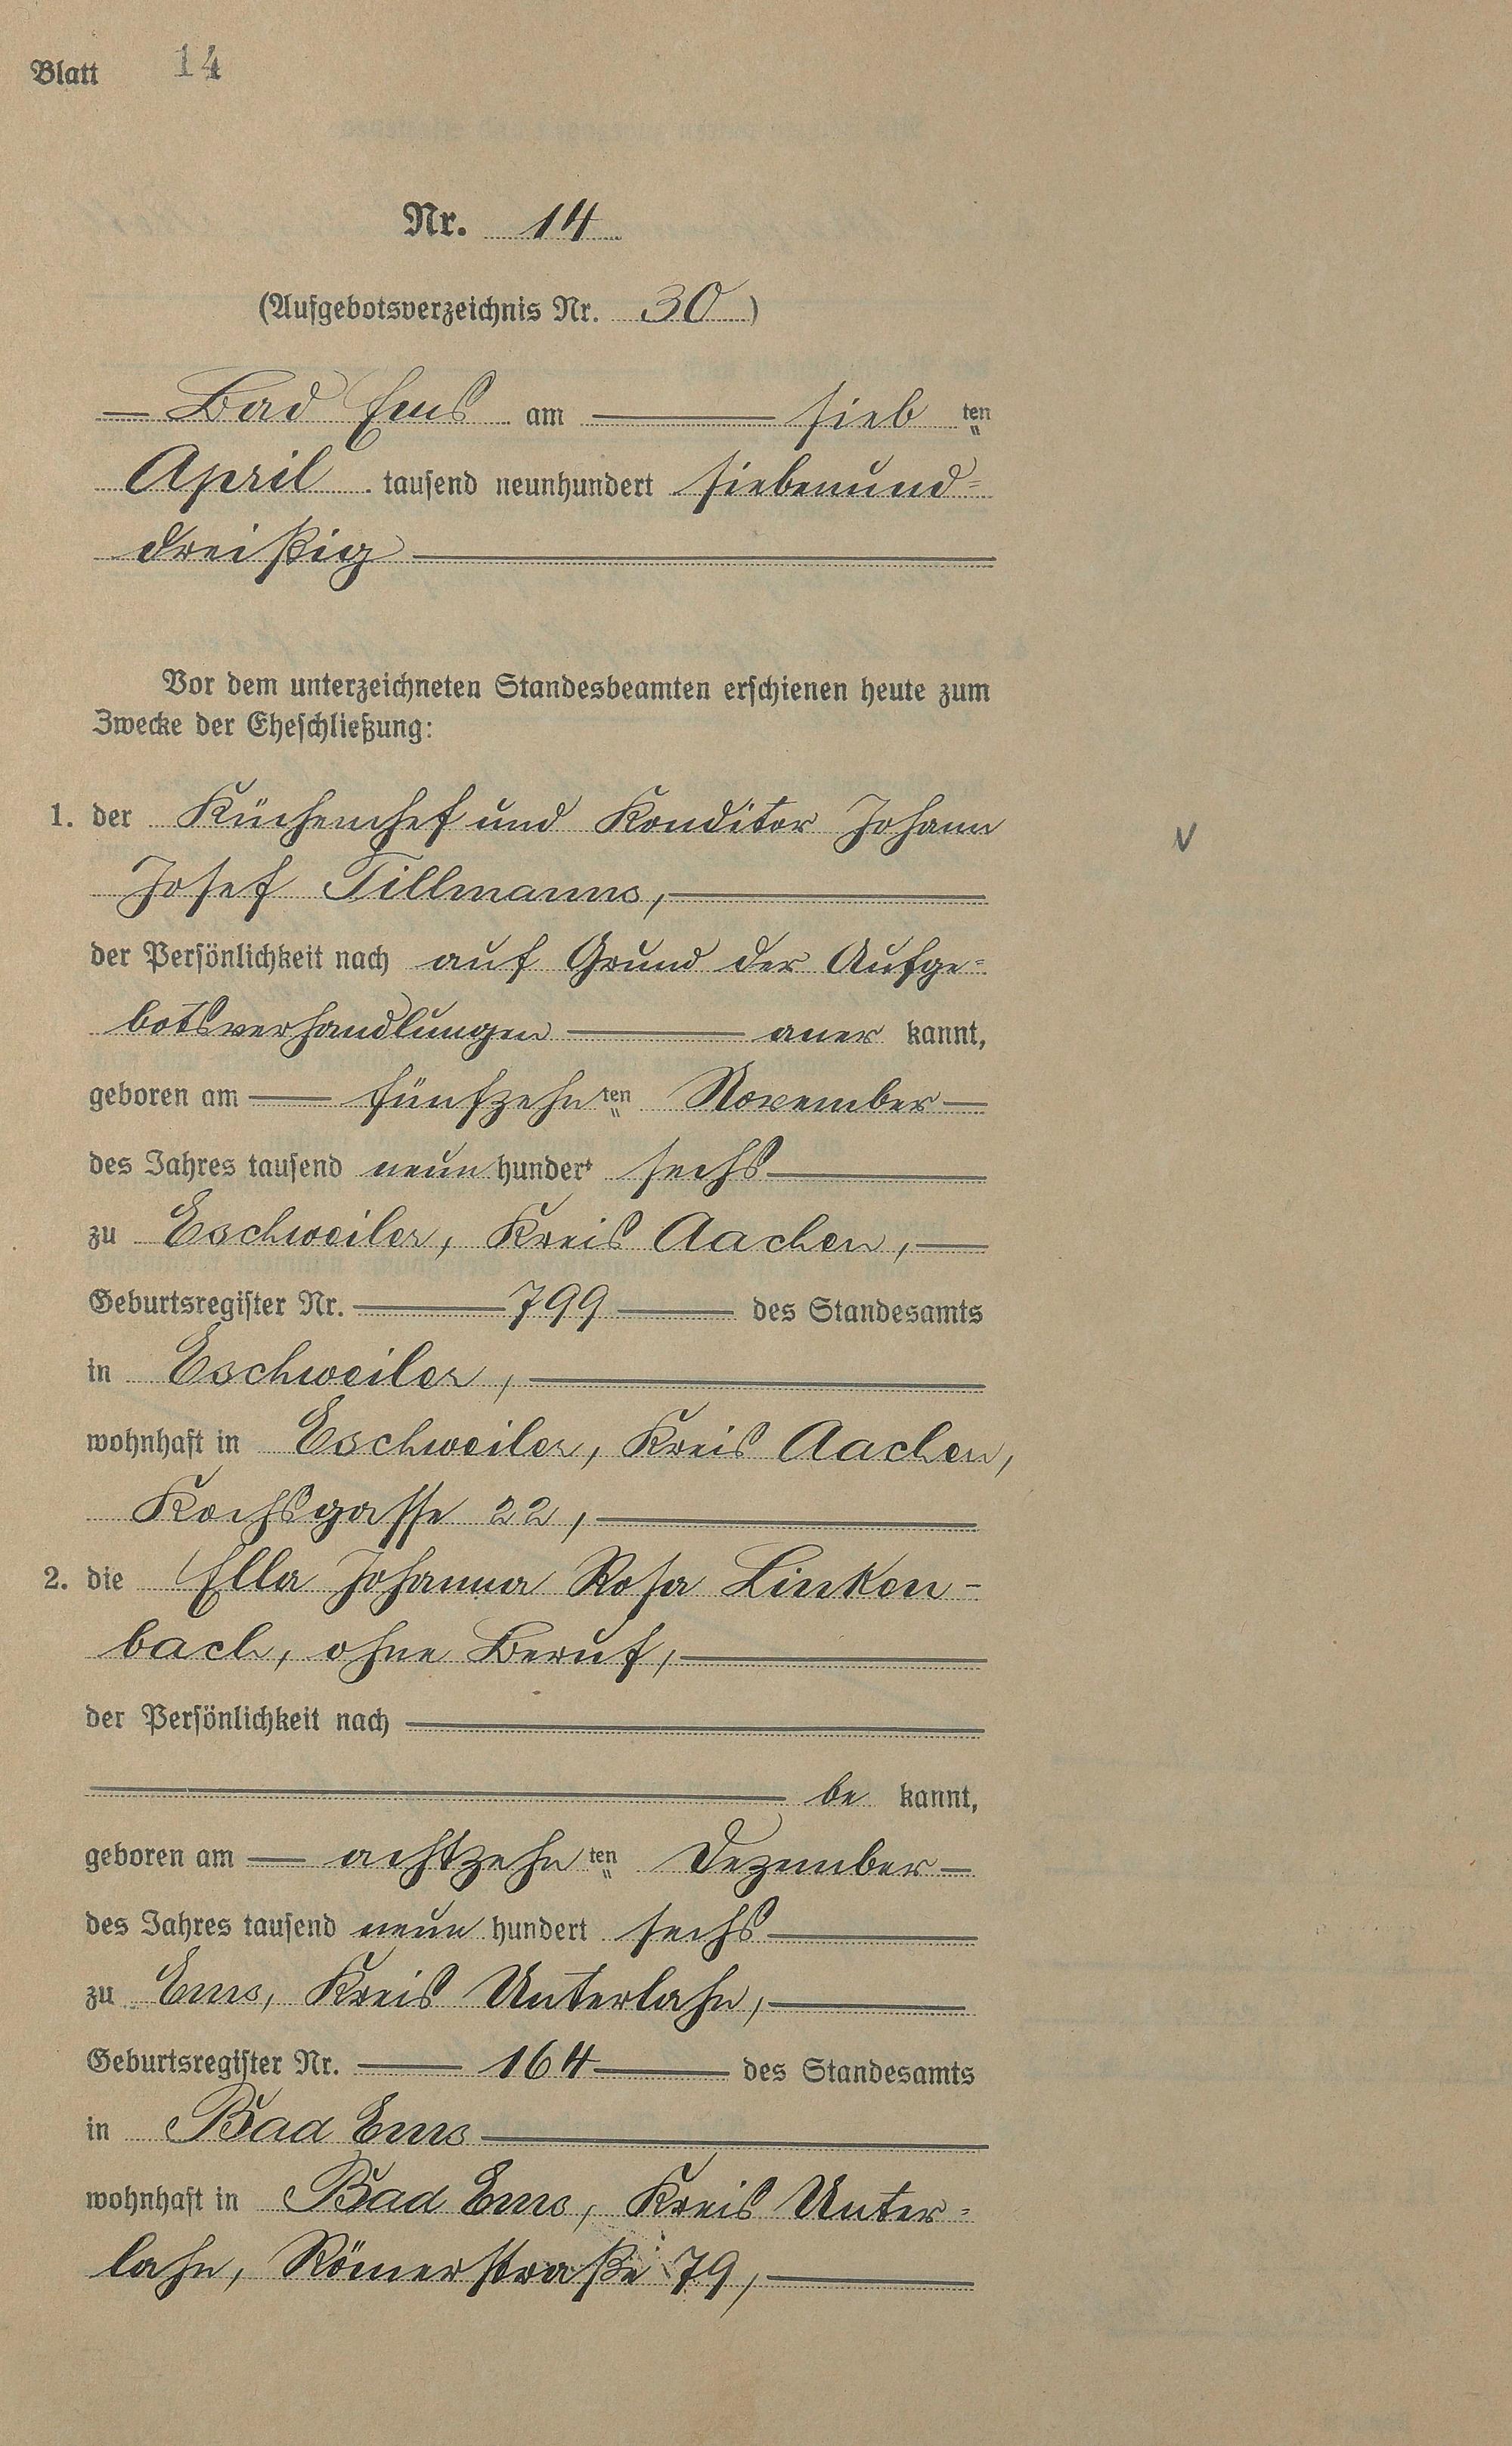 Blatt 14
Nr. 14
(Aufgebotsverzeichnis Nr. 30)
Bad Ems am sieb ten
April tausend neunhundert siebenund-
dreißig
Vor dem unterzeichneten Standesbeamten erschienen heute zum
Zwecke der Eheschließung:
1. der Küchenchef und Konditor Johann
Josef Tillmanns,
der Persönlichkeit nach auf Grund der Aufge-
botsverhandlungen aner kannt,
geboren am fünfzehn ten November
des Jahres tausend neun hundert sechs
zu Eschweiler, Kreis Aachen,
Geburtsregister Nr. 799 des Standesamts
in Eschweiler,
wohnhaft in Eschweiler, Kreis Aachen,
Kochsgasse 22,
2. die Ella Johanna Rosa Linken-
bach, ohne Beruf,
der Persönlichkeit nach
be kannt,
geboren am achtzehn ten Dezember
des Jahres tausend neun hundert sechs
zu Ems, Kreis Unterlahn,
Geburtsregister Nr. 164 des Standesamts
in Bad Ems
wohnhaft in Bad Ems, Kreis Unter-
lahn, Römerstraße 79,